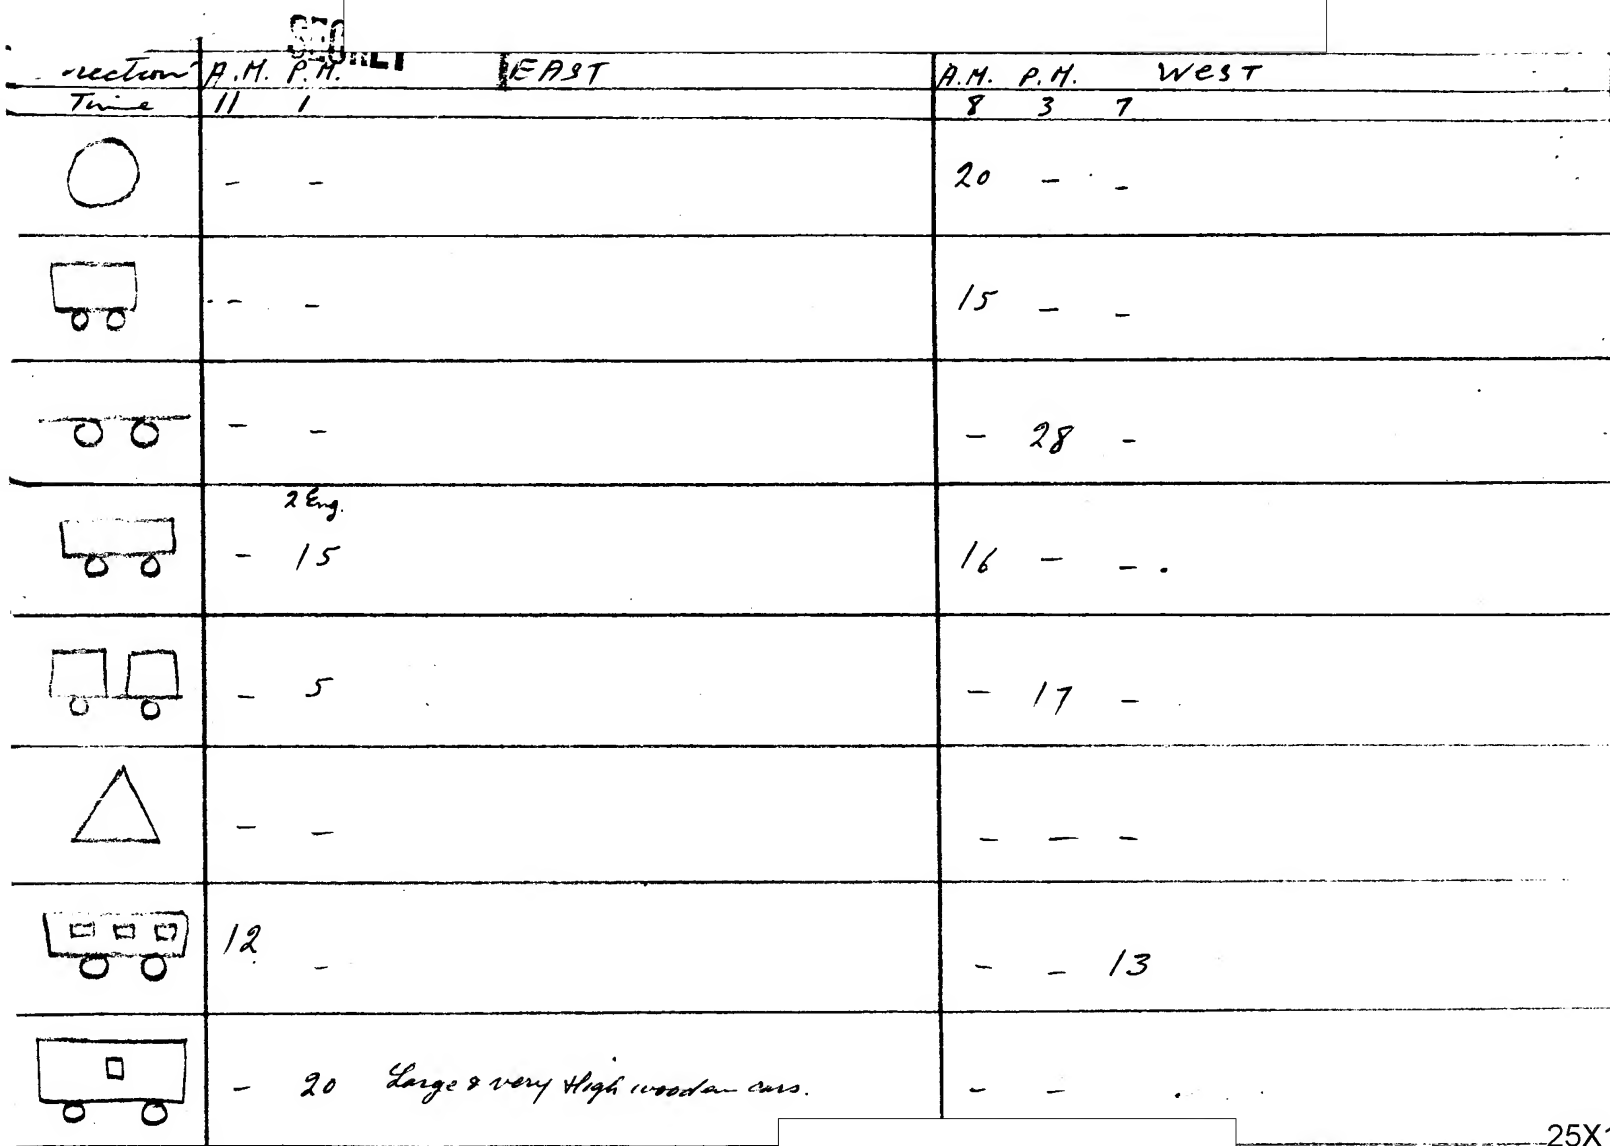 SECRET
A.M. P.M. EAST A.M. P.M. WEST
Time 11 1 8 3 7
- - 20 - -
- - 15 - -
- - - 28 -
2 Eng.
- 15 16 - -
- 5 - 17 -
- - - - -
12 - - - 13
- 20 Large & very High wooden cars. - -